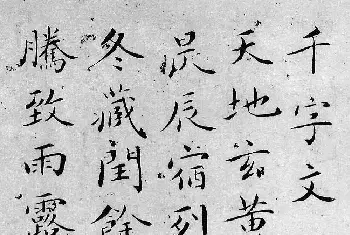 千字文
天地玄黃
昃辰宿列
冬藏閏餘
騰致雨露